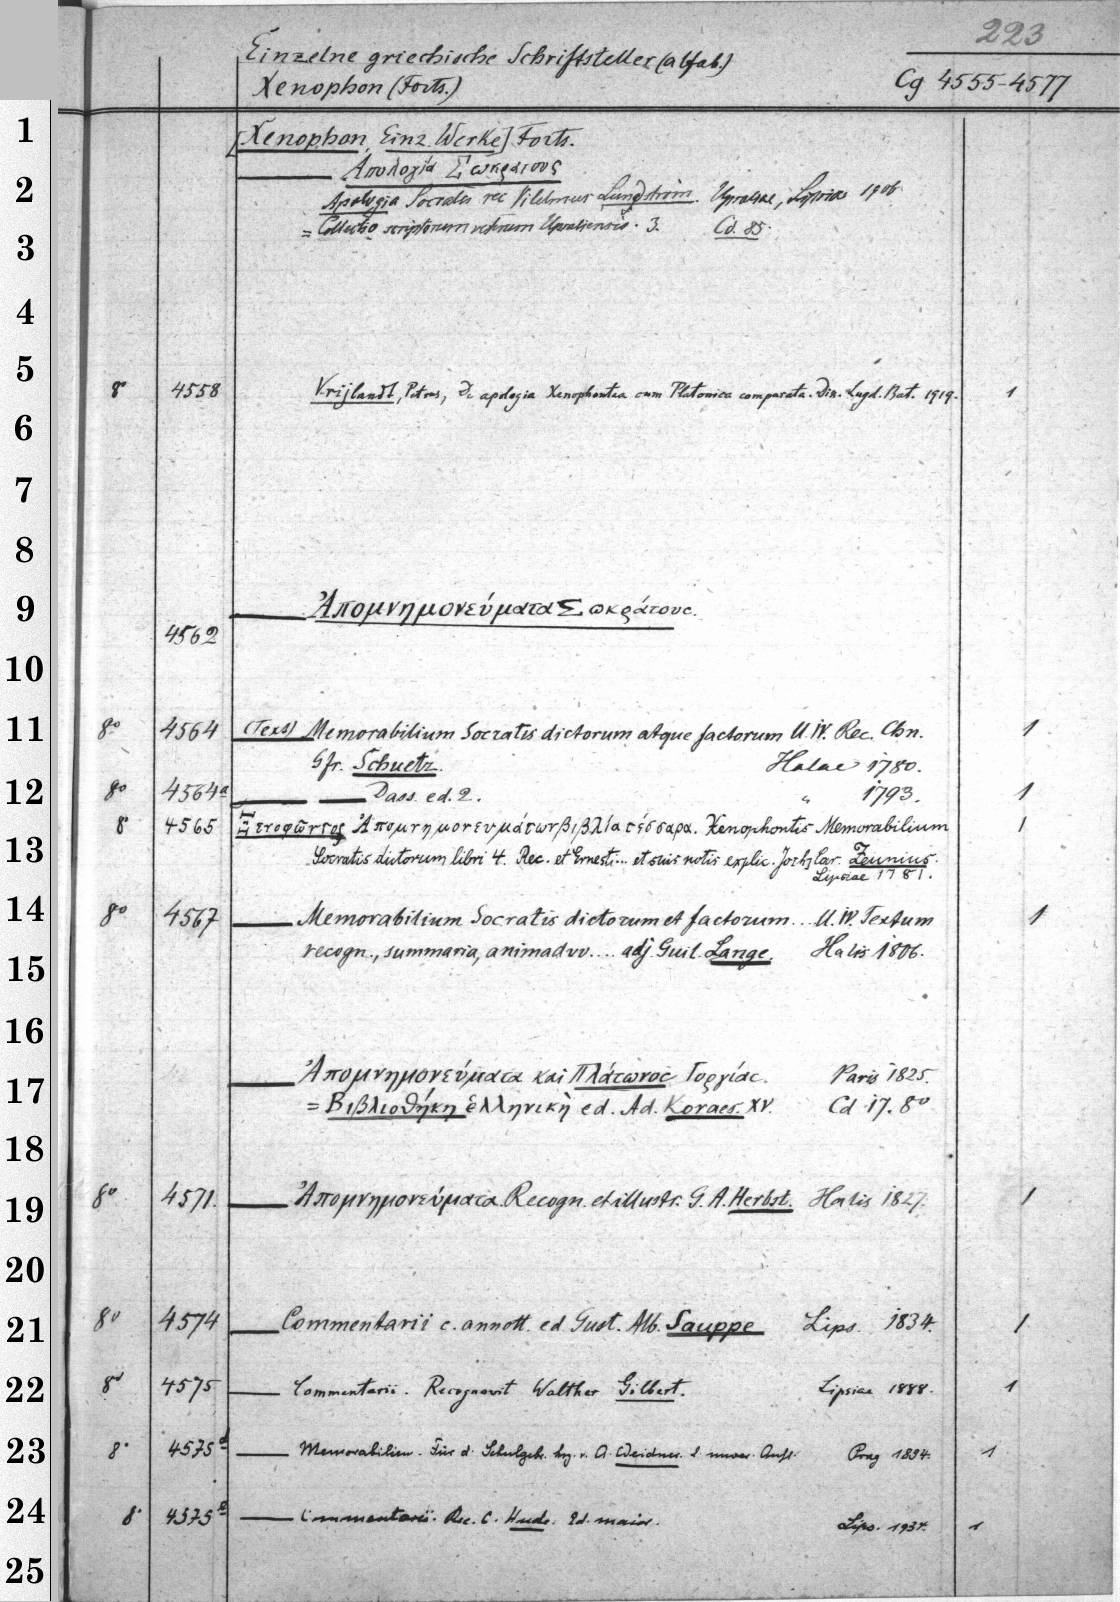 223
Einzelne griechische Schriftsteller (alfab.)
Xenophon (Forts.)
Cg 4555-4577
1
[Xenophon, Einz. Werke] Forts.
Ἀπολογία Σωκράτους
2
Apologia Socratis rec Vilelmus Lundström. Upsaliae, Lipsiae 1906
= Collectio scriptorum veterum Upsaliensis. 3. Cd. 85.
3
4
5
8° 4558 Vrijlandt, Petrus, De apologia Xenophontea cum Platonica comparata. Diss. Lugd. Bat. 1919. 1
6
7
8
9
Ἀπομνημονεύματα Σωκράτους.
4562
10
11
8° 4564 (Text) Memorabilium Socratis dictorum atque factorum ll. IV. Rec. Chn. 1
Gfr. Schuetz. Halae 1780.
12
8° 4564a Dass. ed. 2. " 1793. 1
8° 4565 Ξενοφῶντος Ἀπομνημονευμάτων βιβλία τέσσαρα. Xenophontis Memorabilium 1
13
Socratis dictorum libri 4. Rec. et Ernesti... et suis notis explic. Joh Car. Zeunius.
Lipsiae 1781.
14
8° 4567 Memorabilium Socratis dictorum et factorum... ll. IV. Textum 1
recogn., summaria, animadvv.... adj. Guil. Lange. Halis 1806.
15
16
17
Ἀπομνημονεύματα καὶ Πλάτωνος Γοργίας. Paris 1825.
= Βιβλιοθήκη ἑλληνικὴ ed. Ad. Koraes. XV. Cd 17. 8°
18
19
8° 4571. Ἀπομνημονεύματα. Recogn. et illustr. G. A. Herbst. Halis 1827. 1
20
21
8° 4574 Commentarii c. annott. ed Gust. Alb. Sauppe Lips. 1834. 1
22
8° 4575 Commentarii. Recognovit Walther Gilbert. Lipsiae 1888. 1
23
8° 4575d Memorabilien. Für d. Schulgebr. hg. v. A. Weidner. 2. unver. Aufl. Prag 1894. 1
24
8° 4575 Commentarii. Rec. C. Hude. Ed. maior. Lips. 1934. 1
25